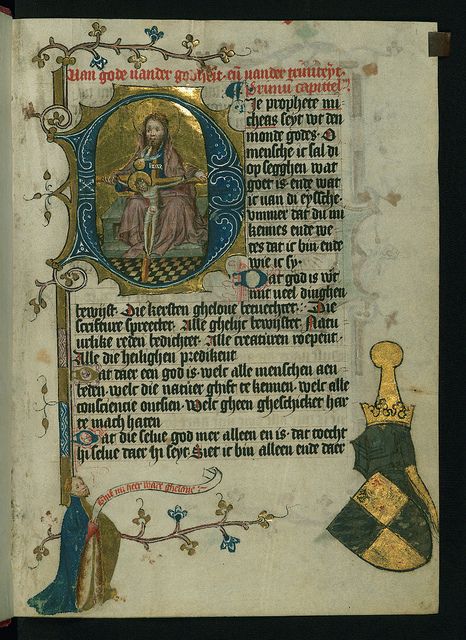 Uan gode uander godheit. en uander triniteyt.
Primu capittel.
Je propheet mi
cheas seyt wt den
monde godes. O
mensche ic sal di
op segghen wat
goet is ende wat
ic uan di eyssche.
ummer dat du mi
kennes ende we
tes dat ic bin ende
wie ic sy.
Dat god is wr
uut ueel dinghen
bewijst. Die kersten gheloue betuechtet. Die
scrifture spreectet. Alle ghelijc bewijstet. Natu
urlike reden bedichtet. Alle creaturen roepent.
Alle die heilighen predikent
Dat daer een god is. welc alle menschen aen
beden. welc die natuer ghift te kennen. welc alle
consciencie ontsien. Welc gheen gheschicket har
te mach haten
Dat die selue god mer alleen en is. dat toecht
hi selue daer hi seyt. Siet ic bin alleen ende daer
mi heer waer gheloue